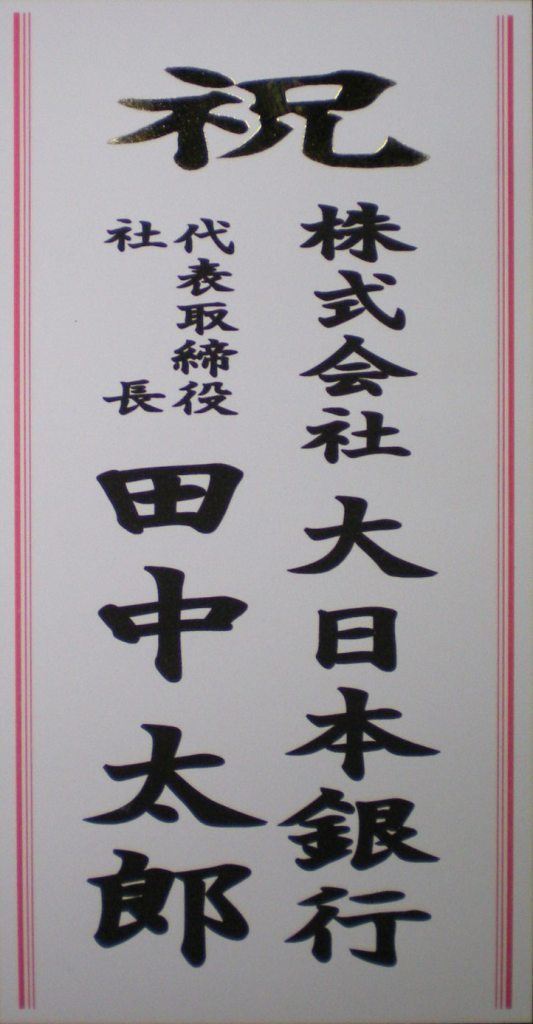 祝
株式会社 大日本銀行
代表取締役
社長
田中太郎